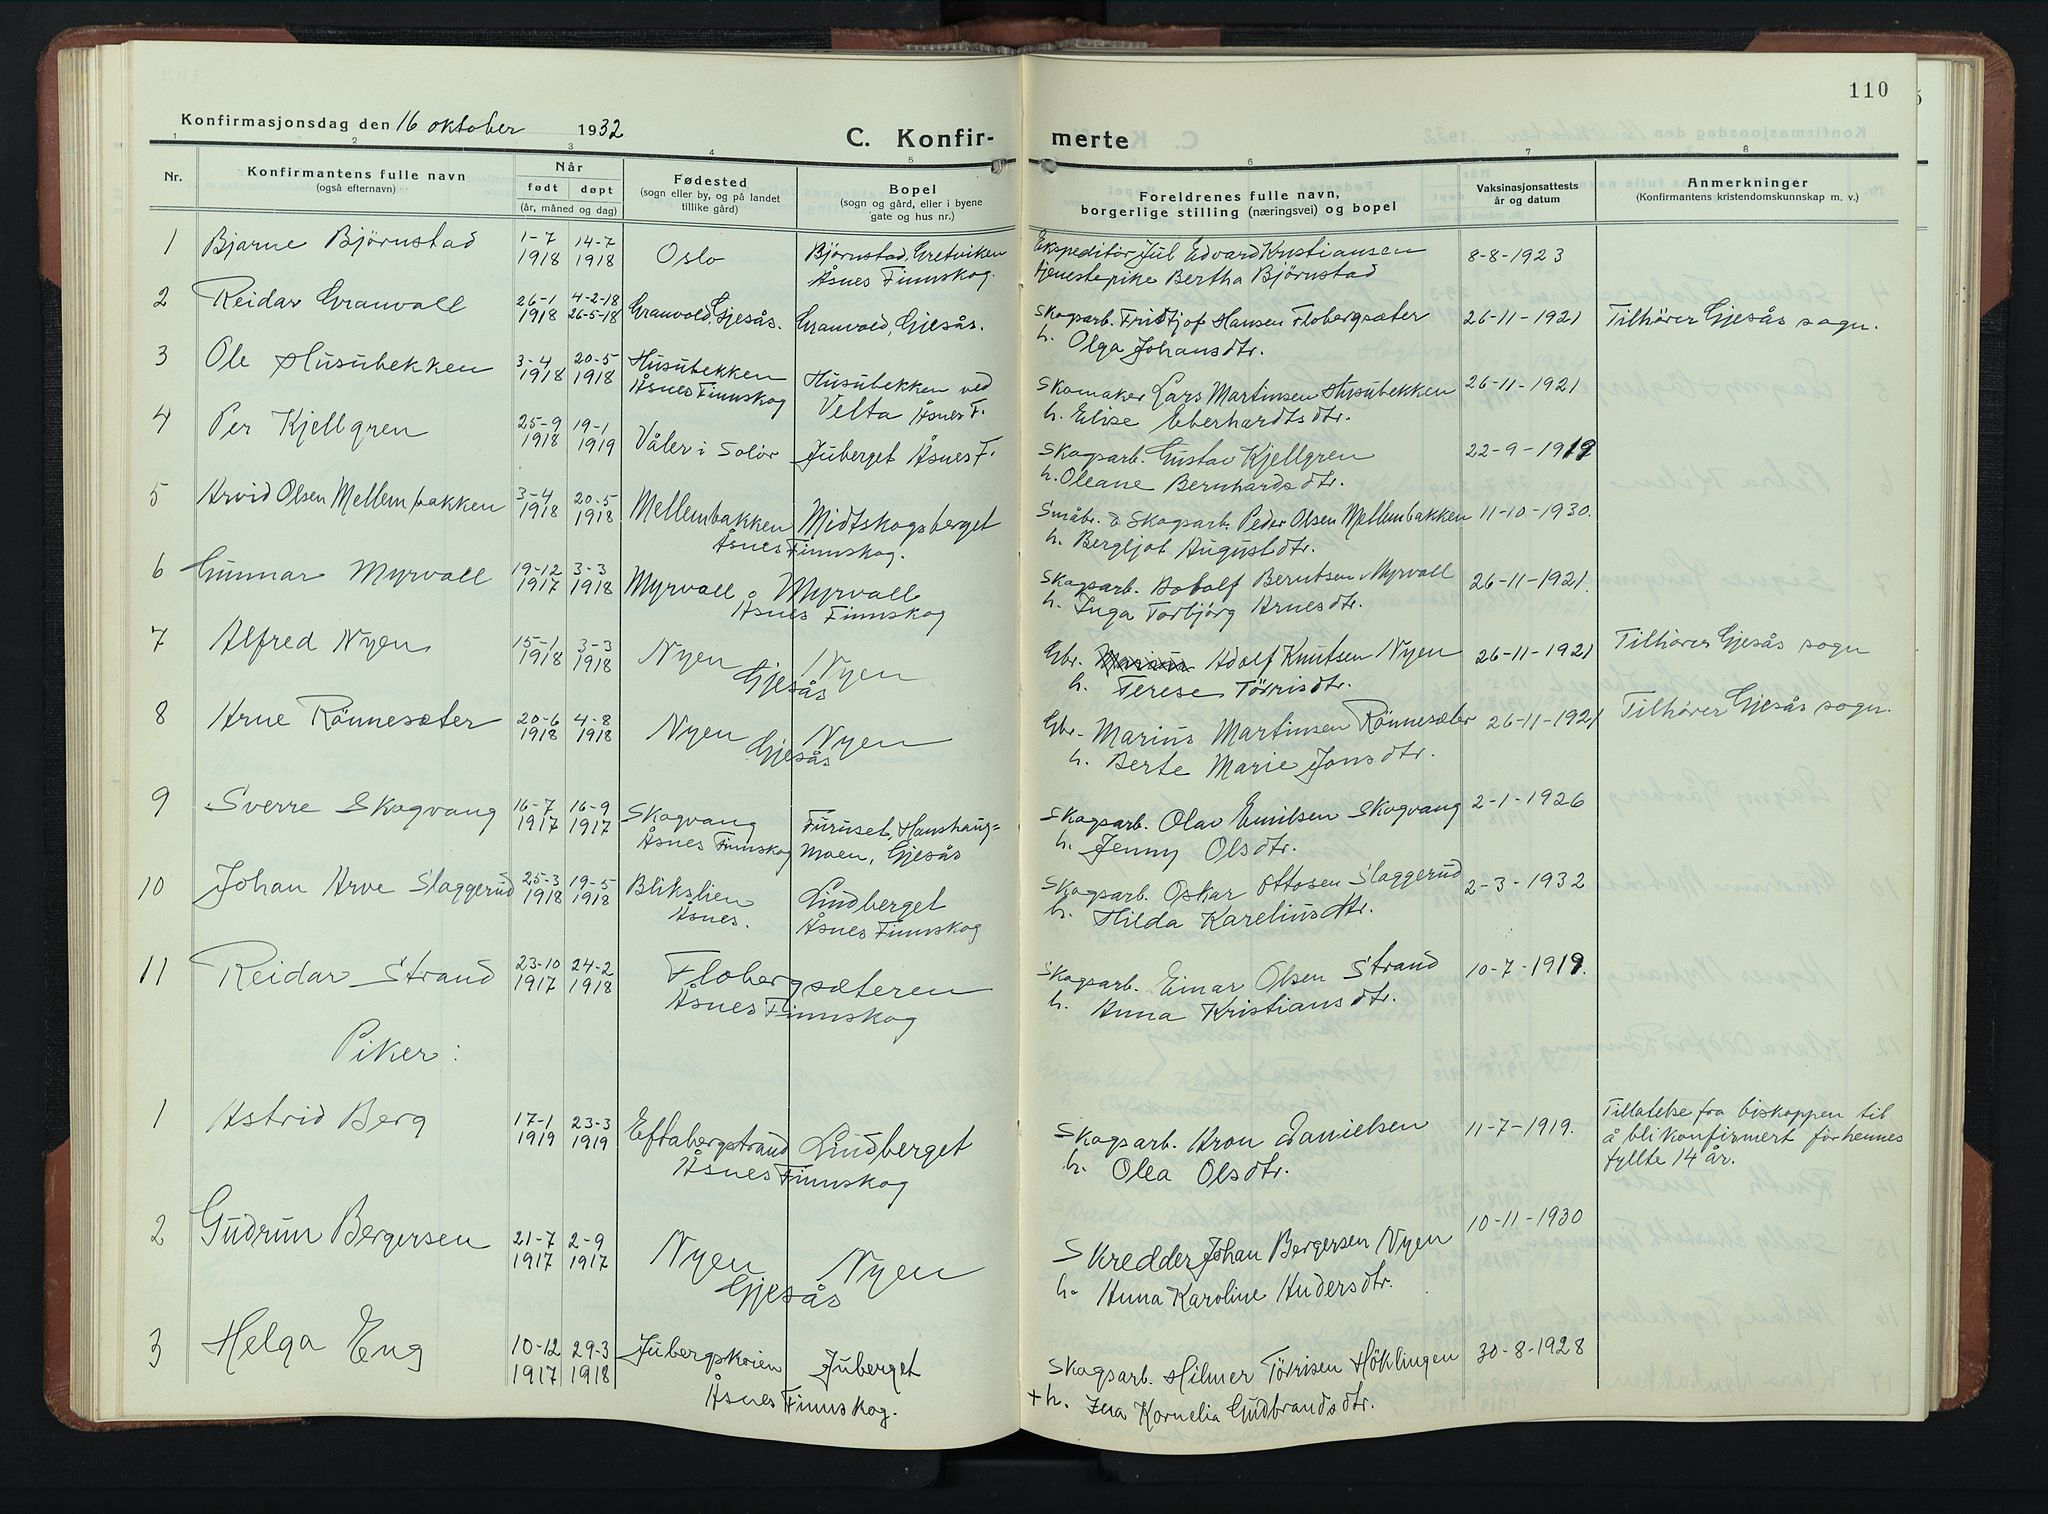 110
Konfirmasjonsdag den 16 oktober 1932
C. Konfir- merte
1 2 3 4 5 6 7 8
Nr.
Konfirmantens fulle navn
(også efternavn)
Når
født døpt
(år, måned og dag)
Fødested
(sogn eller by, og på landet
tillike gård)
Bopel
(sogn og gård, eller i byene
gate og hus nr.)
Foreldrenes fulle navn,
borgerlige stilling (næringsvei) og bopel
Vaksinasjonsattests
år og datum
Anmerkninger
(Konfirmantens kristendomskunnskap m. v.)
1 Bjarne Bjørnstad 1-7 14-7 Oslo Bjørnstad, Gretviken Ekspeditör Jul Edvard Kristiansen 8-8-1923
1918 1918 Åsnes Finnskog. tjenestepike Bertha Bjørnstad
2 Reidar Granvall 26-1 4-2-18 Granvold, Gjesås. Granvold, Gjesås. Skogsarb. Fridtjof Hansen Flobergsæter 26-11-1921 Tilhører Gjesås sogn.
1918 26-5-18 h. Olga Johansdtr.
3 Ole Husubekken 3-4 20-5 Husubekken Husubekken ved Skomaker Lars Martinsen Husubekken 26-11-1921
1918 1918 Åsnes Finnskog Velta Åsnes F. h. Elise Eberhardtsdtr.
4 Per Kjellgren 25-9 19-1 Våler i Solör Juberget Åsnes F. Skogsarb. Gustav Kjellgren 22-9-1919
1918 1919 h. Oleane Bernhardsdtr.
5 Arvid Olsen Mellembakken 3-4 20-5 Mellembakken Midtskogsberget Småbr. & Skogsarb. Peder Olsen Mellembakken 11-10-1930.
1918 1918 Åsnes Finnskog. h. Bergljot Augustdtr.
6 Gunnar Myrvall 19-12 3-3 Myrvall Myrvall Skogsarb. Adolf Berntsen Myrvall 26-11-1921.
1917 1918 Åsnes Finnskog h. Inga Torbjörg Arnesdtr.
7 Alfred Nyen 15-1 3-3 Nyen Nyen Gbr. Adolf Knutsen Nyen 26-11-1921 Tilhører Gjesås sogn
1918 1918 Gjesås h. Terese Törrisdtr.
8 Arne Rönnesæter 20-6 4-8 Nyen Nyen Gbr. Marius Martinsen Rönnesæter 26-11-1921 Tilhører Gjesås sogn.
1918 1918 Gjesås h. Berte Marie Jonsdtr.
9 Sverre Skogvang 16-7 16-9 Skogvang Furuset, Hanshaug= Skogsarb. Olav Emilsen Skogvang 2-1-1926
1917 1917 Åsnes Finnskog moen, Gjesås h. Jenny Olsdtr.
10 Johan Arve Slaggerud 25-3 19-5 Blikslien Lindberget Skogsarb. Oskar Ottosen Slaggerud 2-3-1932
1918 1918 Åsnes. Åsnes Finnskog h. Hilda Kareliusdtr.
11 Reidar Strand 23-10 24-2 Flobergsæteren Skogsarb. Einar Olsen Strand 10-7-1919.
1917 1918 Åsnes Finnskog h. Anna Kristiansdtr.
Piker:
1 Astrid Berg 17-1 23-3 Eftabergstrand Lindberget Skogsarb. Aron Danielsen 11-7-1919. Tillatelse fra biskoppen til
1919 1919 Åsnes Finnskog h. Olea Olsdtr. å bli konfirmert för hennes
fyllte 14 år.
2 Gudrun Bergersen 21-7 2-9 Nyen Nyen Skredder Johan Bergersen Nyen 10-11-1930
1917 1917 Gjesås h. Anna Karoline Andersdtr.
3 Helga Eng 10-12 29-3 Jubergskoien Juberget Skogsarb. Hilmer Törrisen Höklingen 30-8-1928
1917 1918 Åsnes Finnskog. +h. Ina Kornelia Gudbrandsdtr.